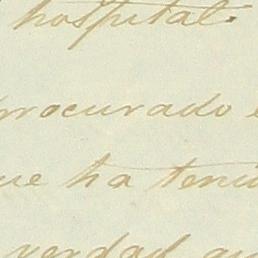 hospital.
procurado
que ha tenid
verdad qu